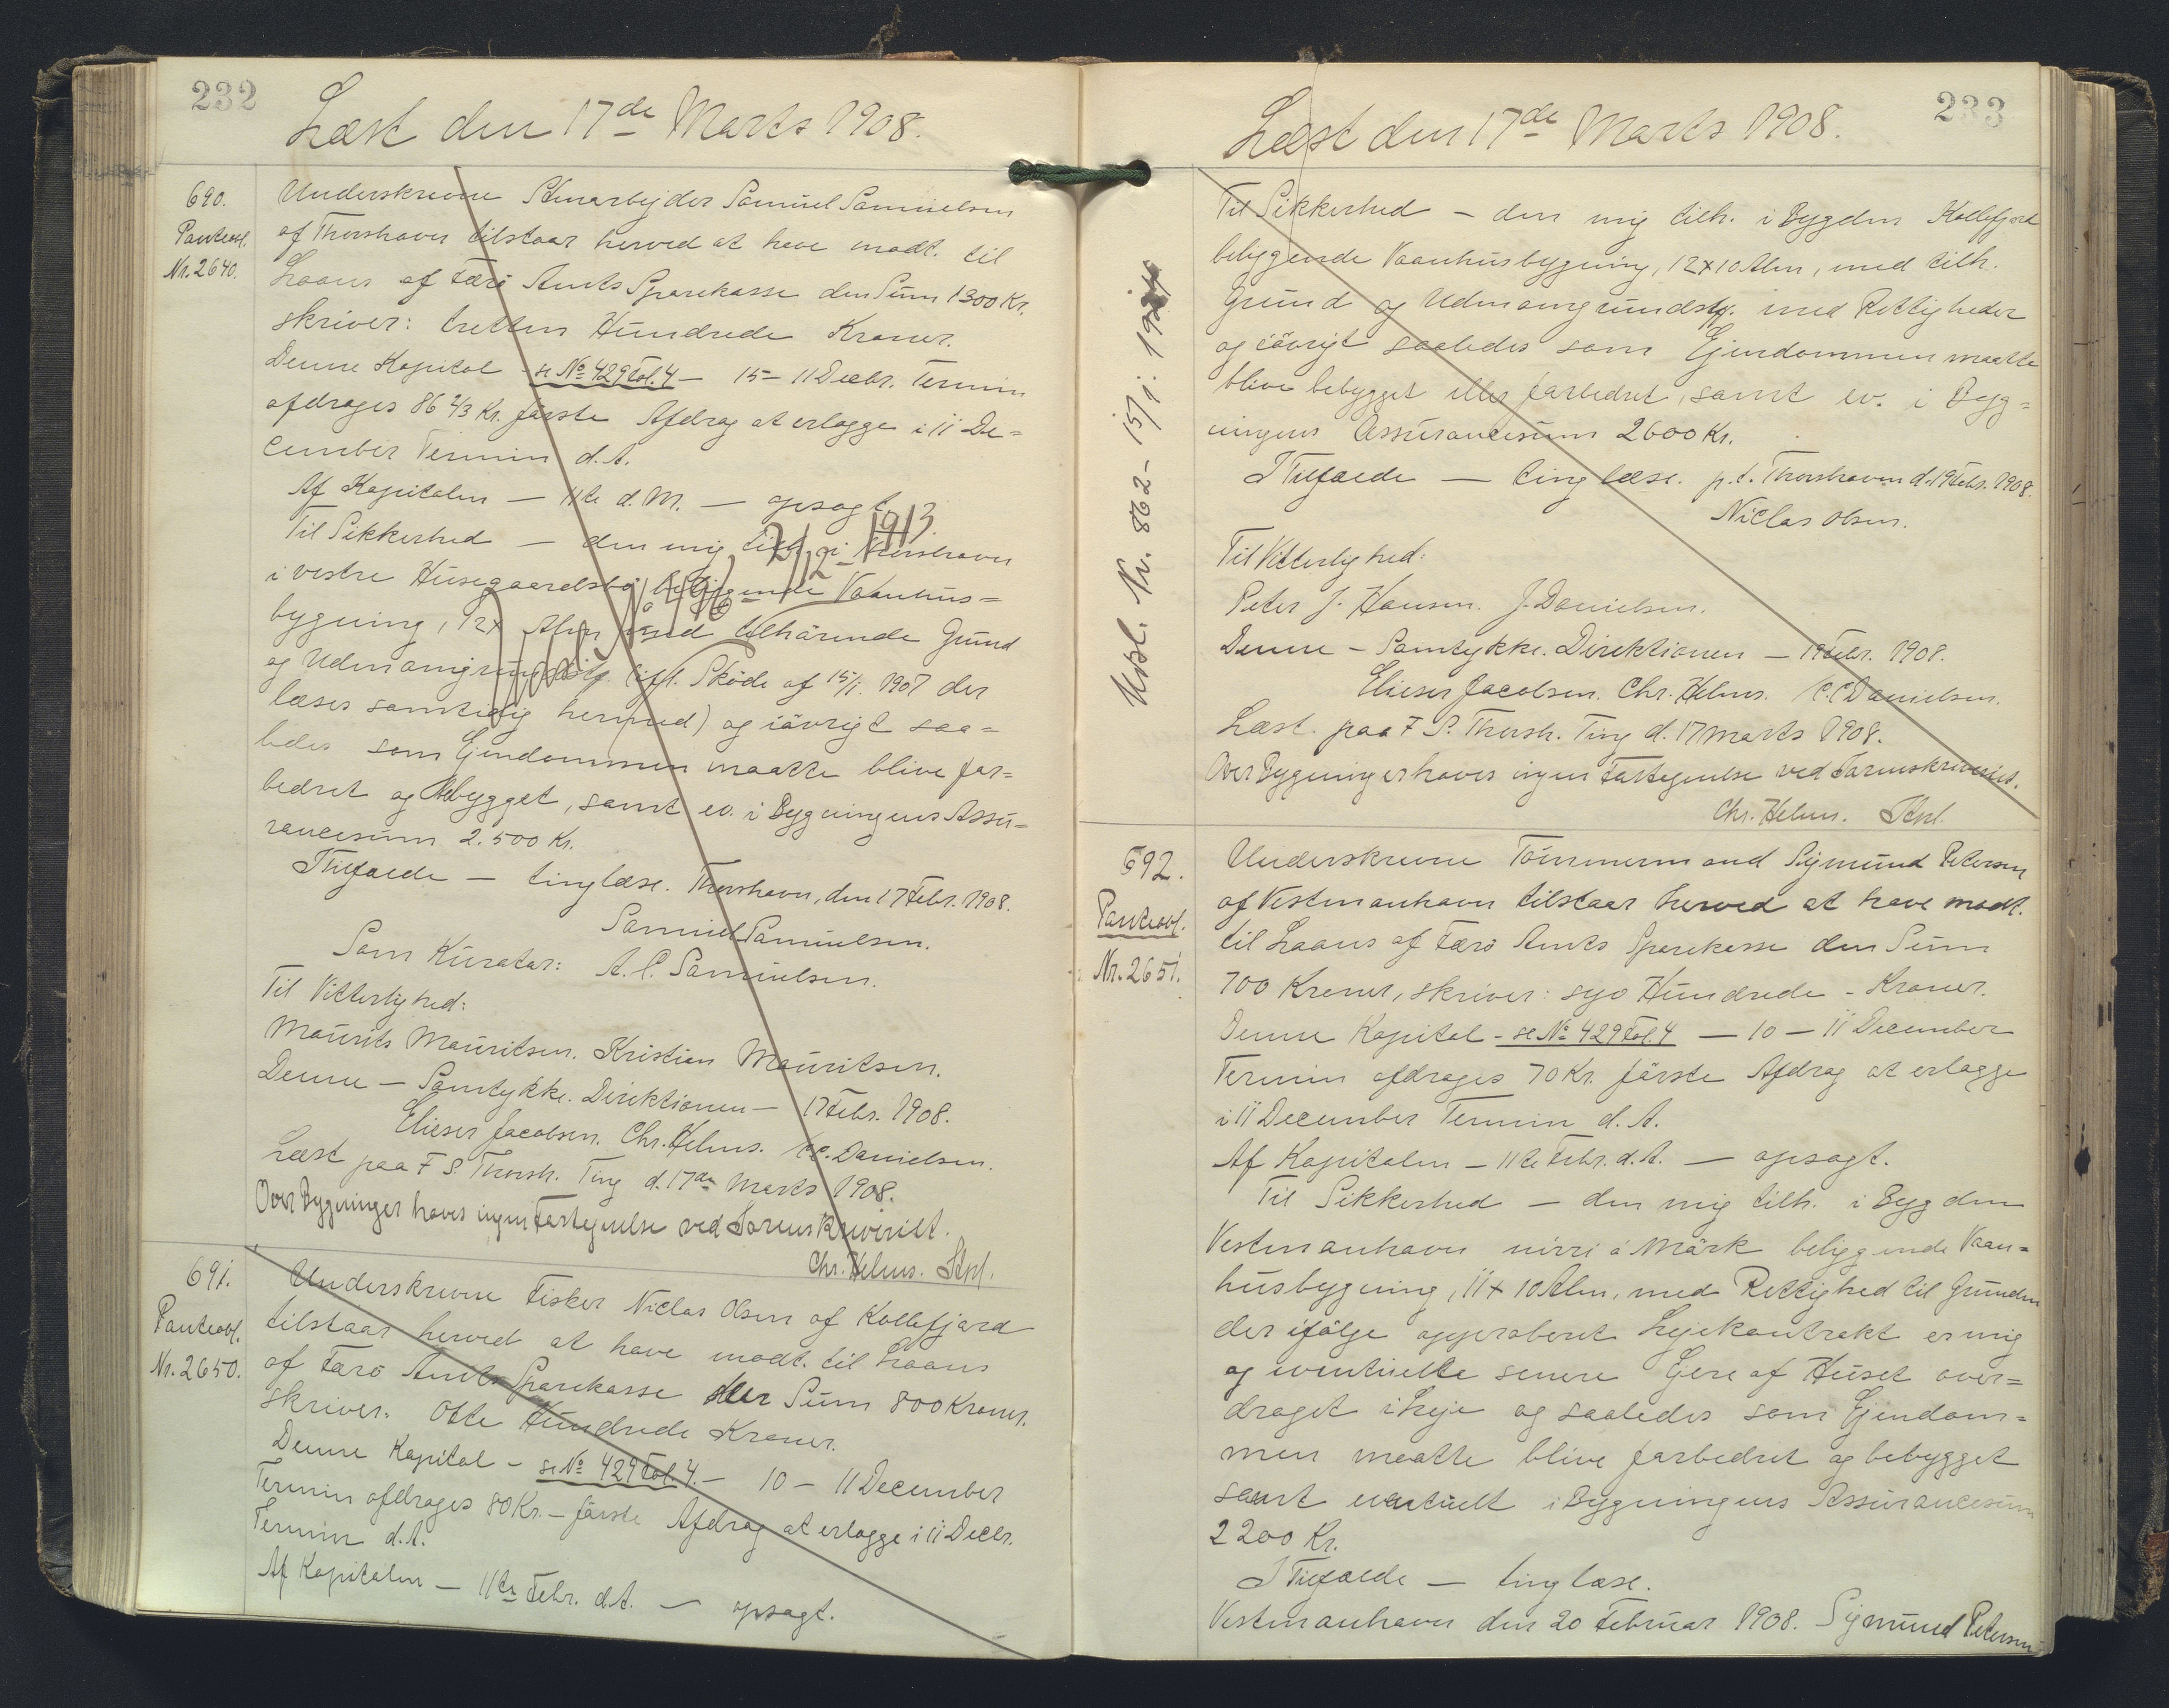 232
Læst den 17de Marts 1908.
690.
Panteobl.
Nr. 2640.
Underskrevne Stenarbejder Samuel Samuelsen
af Thorshavn tilstaar herved at have modt. til
Laans af Færö Amts Sparekasse den Sum 1300 Kr.
skriver: tretten Hundrede Kroner.
Denne Kapital - se No 429 Fol. 4 - 15 - 11 Decbr. Termin
afdrages 86 2/3 Kr. förste Afdrag at erlægge i 11 De=
cember Termin d. A.
Af Kapitalen - 11te d. M. - opsagt.
Til Sikkerhed - den mig tilh. i Thorshavn
i vestre Husegaardsbö beliggende Vaanhus=
bygning, 12x Alen med tilhörende Grund
og Udenomsgrundstk. (ifl. Sköde af 15/1. 1907 der
læses samtidig hermed) og iövrigt saa=
ledes som Ejendommen maatte blive for=
bedret og bebygget, samt ev. i Bygningens Assu=
rancesum 2.500 Kr.
I Tilfælde - tinglæse. Thorshavn, den 17 Febr. 1908.
Samuel Samuelsen.
Som Kurator: A. C. Samuelsen.
Til Vitterlighed:
Maurits Mauritsen. Kristian Mauritsen.
Denne - Samtykke. Direktionen - 17 Febr. 1908.
Elieser Jacobsen. Chr. Helms. C.C. Danielsen.
Læst paa F S. Thorsh. Ting d. 17de Marts 1908.
Over Bygninger haves ingen Fortegnelse ved Sorenskriveriet.
Chr. Helms. Kst.
2/12 1913
No 496
691.
Panteobl.
Nr. 2650.
Underskrevne Fisker Niclas Olsen af Kollefjord
tilstaar herved at have modt. til Laans
af Færö Amts Sparekasse den Sum 800 Kroner.
skriver: Otte Hundrede Kroner.
Denne Kapital - se No 429 Fol. 4. - 10 - 11 December
Termin afdrages 80 Kr. - förste Afdrag at erlægge i 11 Decbr.
Termin d. A.
Af Kapitalen - 11te Febr. d. A. - opsagt.
233
Læst den 17de Marts 1908.
Til Sikkerhed - den mig tilh. i Bygden Kollefjord
beliggende Vaanhusbygning, 12x10 Alen, med tilh.
Grund og Udenomsgrundstk. med Rettigheder
og iövrigt saaledes som Ejendommen maatte
blive bebygget eller forbedret, samt ev. i Byg=
ningens Assurancesum 2600 Kr.
I Tilfælde - tinglæse. p. t. Thorshavn d. 19 Febr. 1908.
Niclas Olsen.
Til Vitterlighed:
Peter J. Hansen. J. Danielsen.
Denne - Samtykke. Direktionen - 19 Febr. 1908.
Elieser Jacobsen. Chr. Helms. C.C. Danielsen.
Læst paa F S. Thorsh. Ting d. 17 Marts 1908.
Over Bygninger haves ingen Fortegnelse ved Sorenskriveriet.
Chr. Helms. Kst.
Nr. 862 - 15/1.
692.
Panteobl.
Nr. 2651.
Underskrevne Tömmermand Sigmund Petersen
af Vestmanhavn tilstaar herved at have modt.
til Laans af Færö Amts Sparekasse den Sum
700 Kroner, skriver: syv Hundrede - Kroner.
Denne Kapital - se No 429 Fol. 4 - 10 - 11 December
Termin afdrages 70 Kr. förste Afdrag at erlægge
i 11 December Termin d. A.
Af Kapitalen - 11te Febr. d. A. - opsagt.
Til Sikkerhed - den mig tilh. i Bygden
Vestmanhavn nirri á Mörk beliggende Vaan=
husbygning, 11 x 10 Alen, med Rettighed til Grunden
der ifölge approberet Lejekontrakt er mig
og eventuelle senere Ejere af Huset over=
draget i Leje og saaledes som Ejendom=
men maatte blive forbedret og bebygget
samt eventuelt i Bygningens Assurancesum
2200 Kr.
I Tilfælde - tinglæse.
Vestmanhavn den 20 Februar 1908. Sigmund Petersen